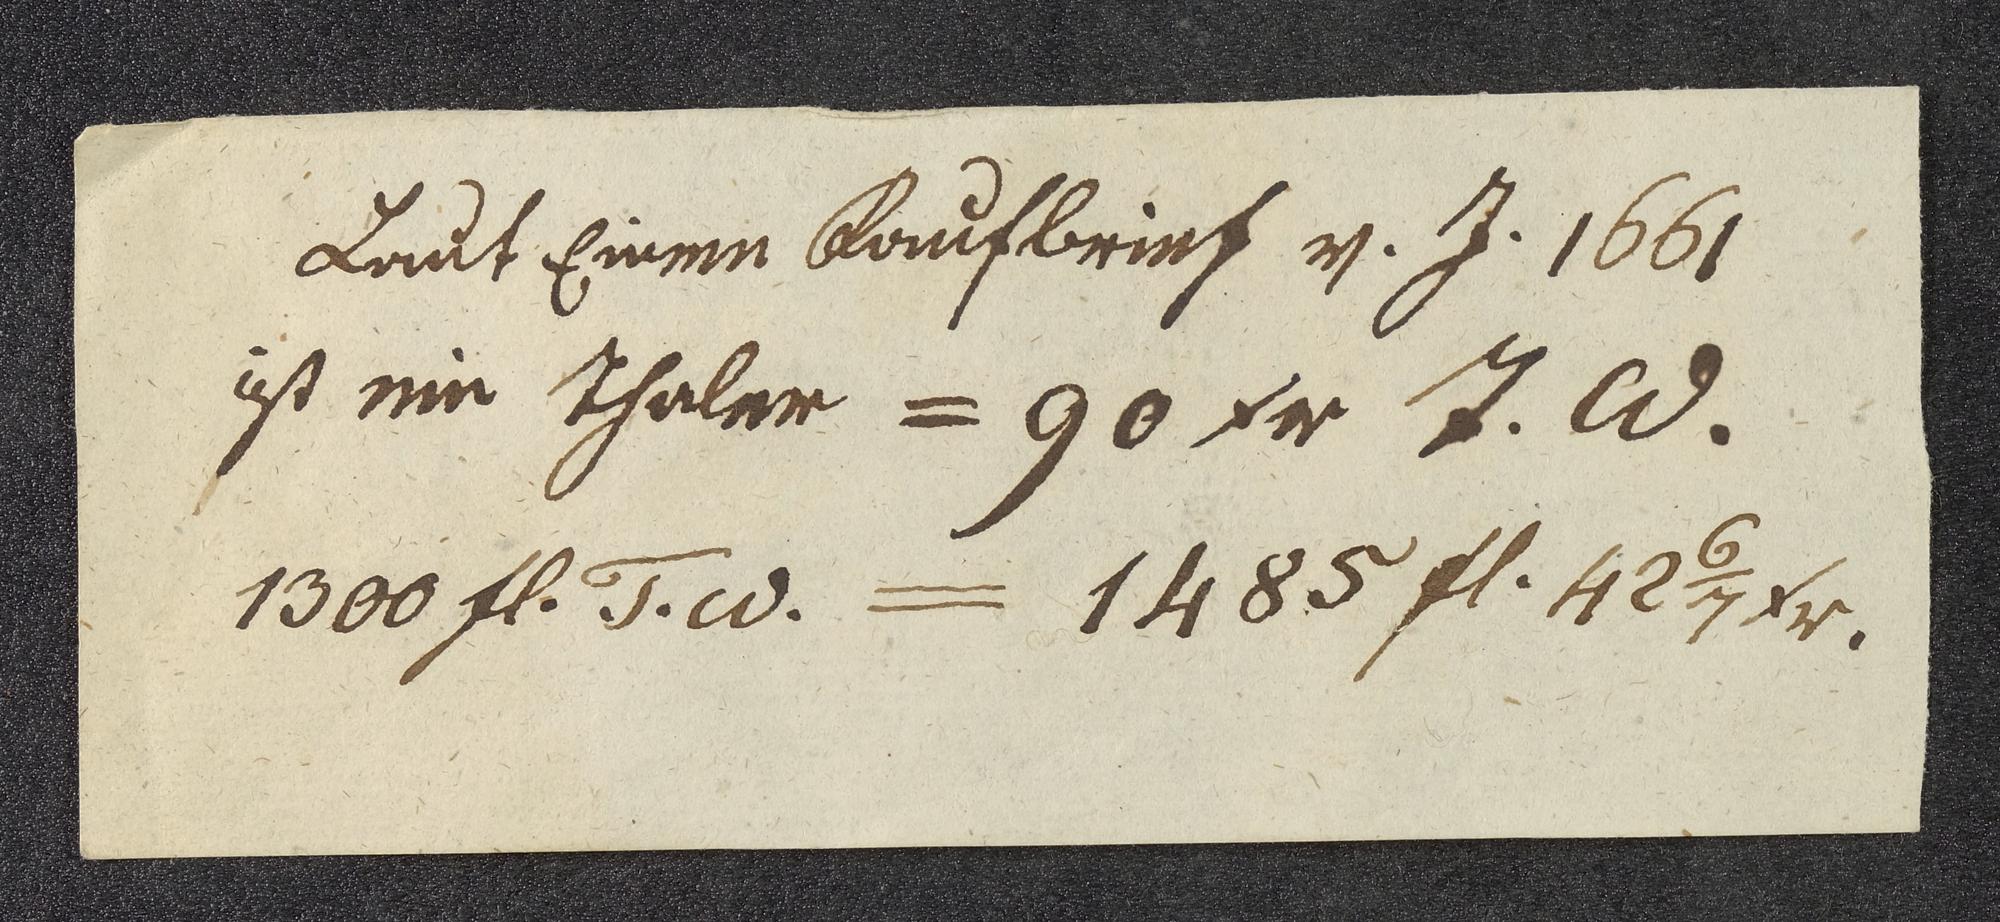 Laut Einem Kaufbrief v. J. 1661
ist ein Thaler = 90 xr T. W.
1300 fl. T. W. = 1485 fl. 42 6/7 xr.